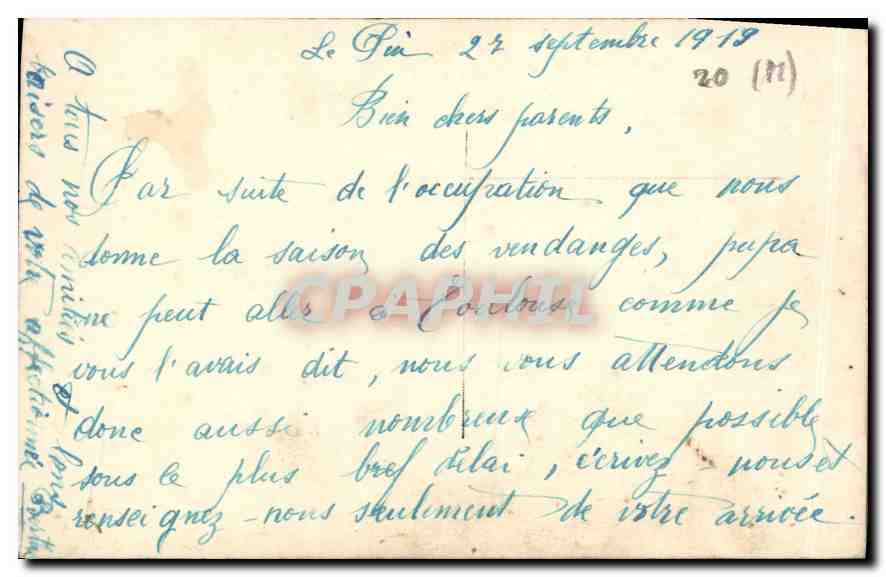 Le Pin 27 septembre 1919
20 (M)
Bien chers parents,
Par suite de l'occupation que nous
donne la saison des vendanges, papa
ne peut aller à Toulouse comme je
vous l'avais dit, nous vous attendons
donc aussi nombreux que possible
sous le plus bref délai, écrivez-nous et
renseignez-nous seulement de votre arrivée.
A tous nos amitiés et bons
baisers de votre affectionnée
CPAPHIL